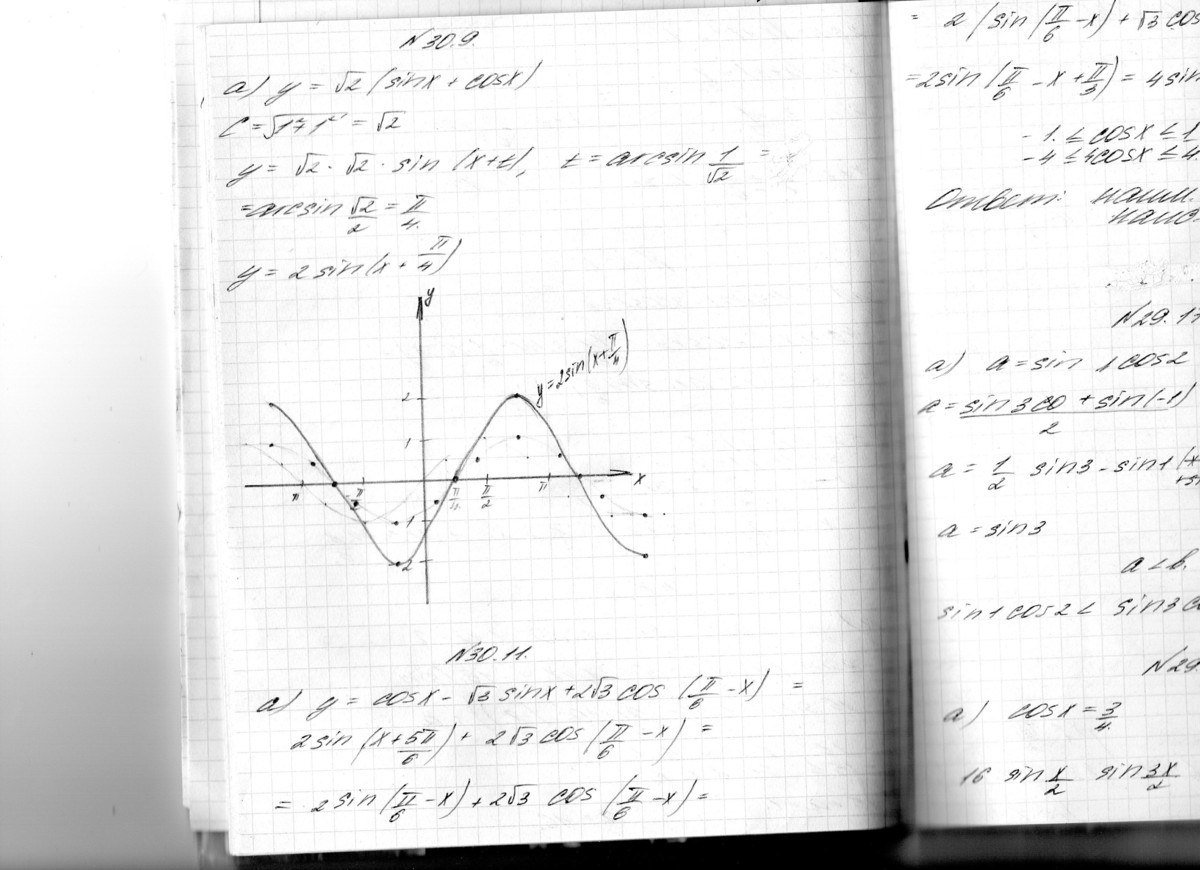 N 30.9.
а) y = √2 (sinx + cosx)
C = √1²+1² = √2
y = √2 · √2 · sin (x+t), t = arcsin 1/√2 =
= arcsin √2/2 = π/4.
y = 2 sin(x + π/4)
y
y = 2sin(x+π/4)
2
1
x
π π/2 π/4 π/2 π
1
2
N 30.11.
а) y = cosx - √3 sinx + 2√3 cos (π/6 - x) =
2sin (x + 5π/6) + 2√3 cos (π/6 - x) =
= 2 sin (π/6 - x) + 2√3 cos (π/6 - x) =
= 2 (sin (π/6 - x) + √3 cos
= 2sin (π/6 - x + π/3) = 4 sin
-1 ≤ cosx ≤ 1
-4 ≤ 4cosx ≤ 4.
Ответ: наим.
наиб.
N 29.1
а) a = sin 1 cos2
a = sin 3 + sin(-1) / 2
a = 1/2 sin3 - sin1
a = sin3
a < b.
sin1 cos2 < sin3 c
N 29
а) cosx = 3/4.
16 sin x/2 sin 3x/2